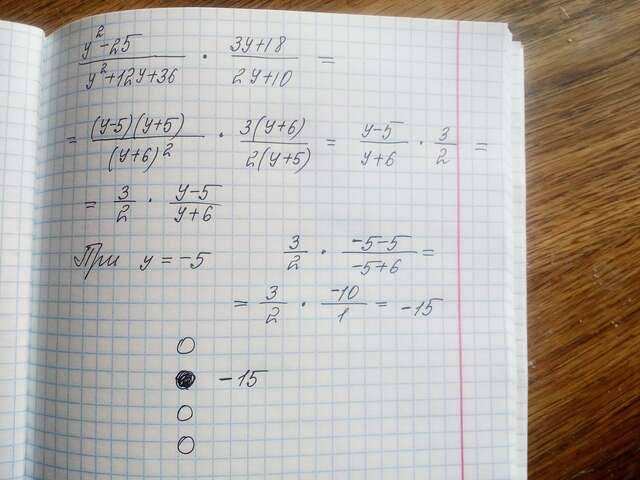 (y²-25)/(y²+12y+36) · (3y+18)/(2y+10) =
= ((y-5)(y+5))/((y+6)²) · (3(y+6))/(2(y+5)) = (y-5)/(y+6) · 3/2 =
= 3/2 · (y-5)/(y+6)
При y = -5 3/2 · (-5-5)/(-5+6) =
= 3/2 · (-10)/1 = -15
-15